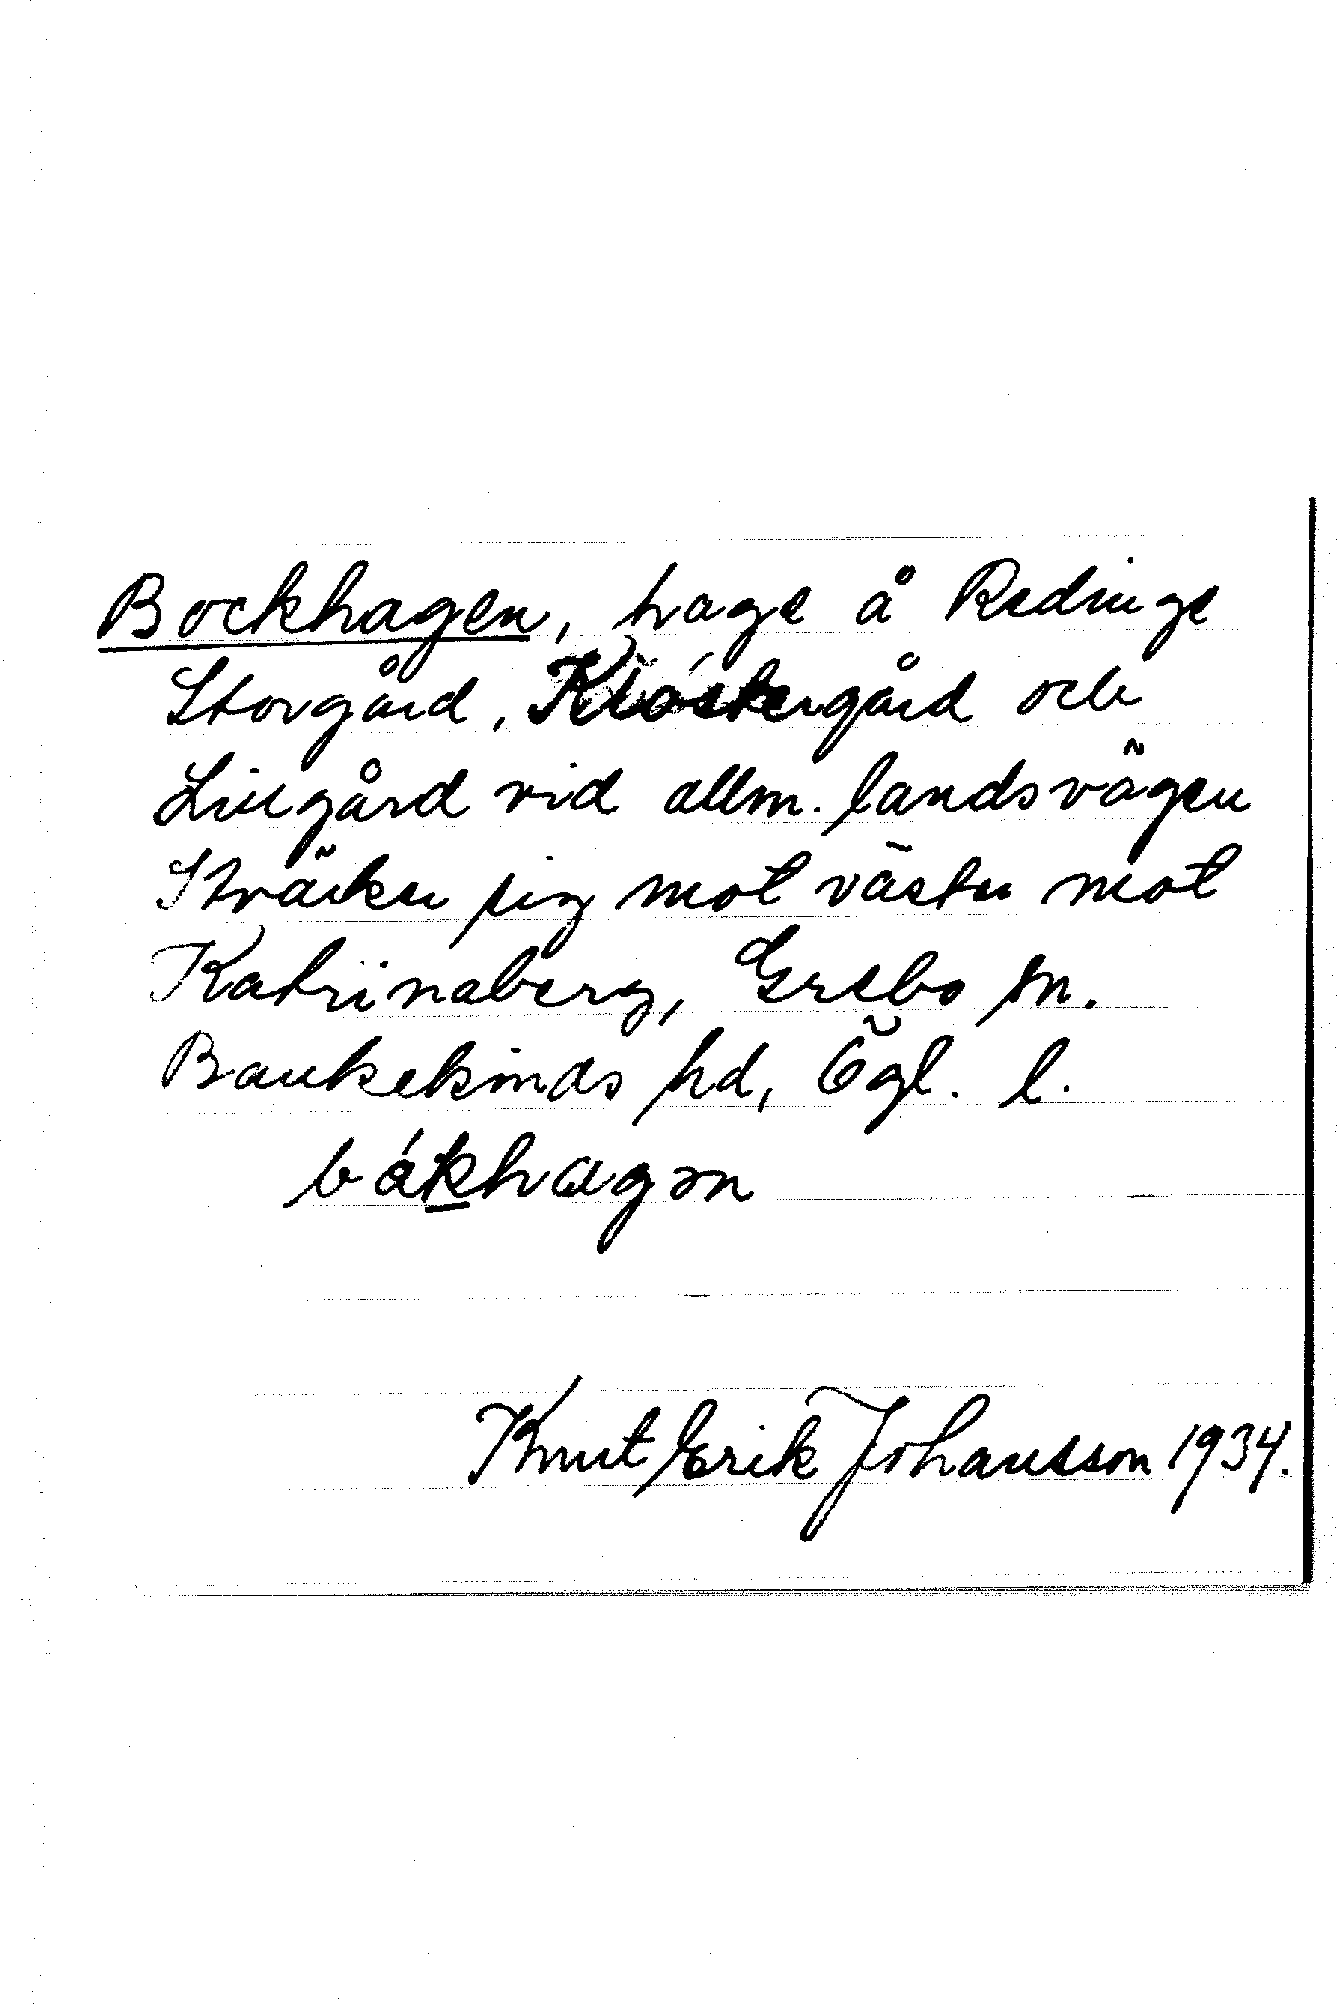 Bockhagen, hage å Redinge
Storgård, Klostergård och
Lillgård vid allm. landsvägen
Sträcker sig mot väster mot
Katrinaberg, Grebo sn.
Bankekinds hd, Ögl. l.
bákhagən
Knut Erik Johansson 1934.